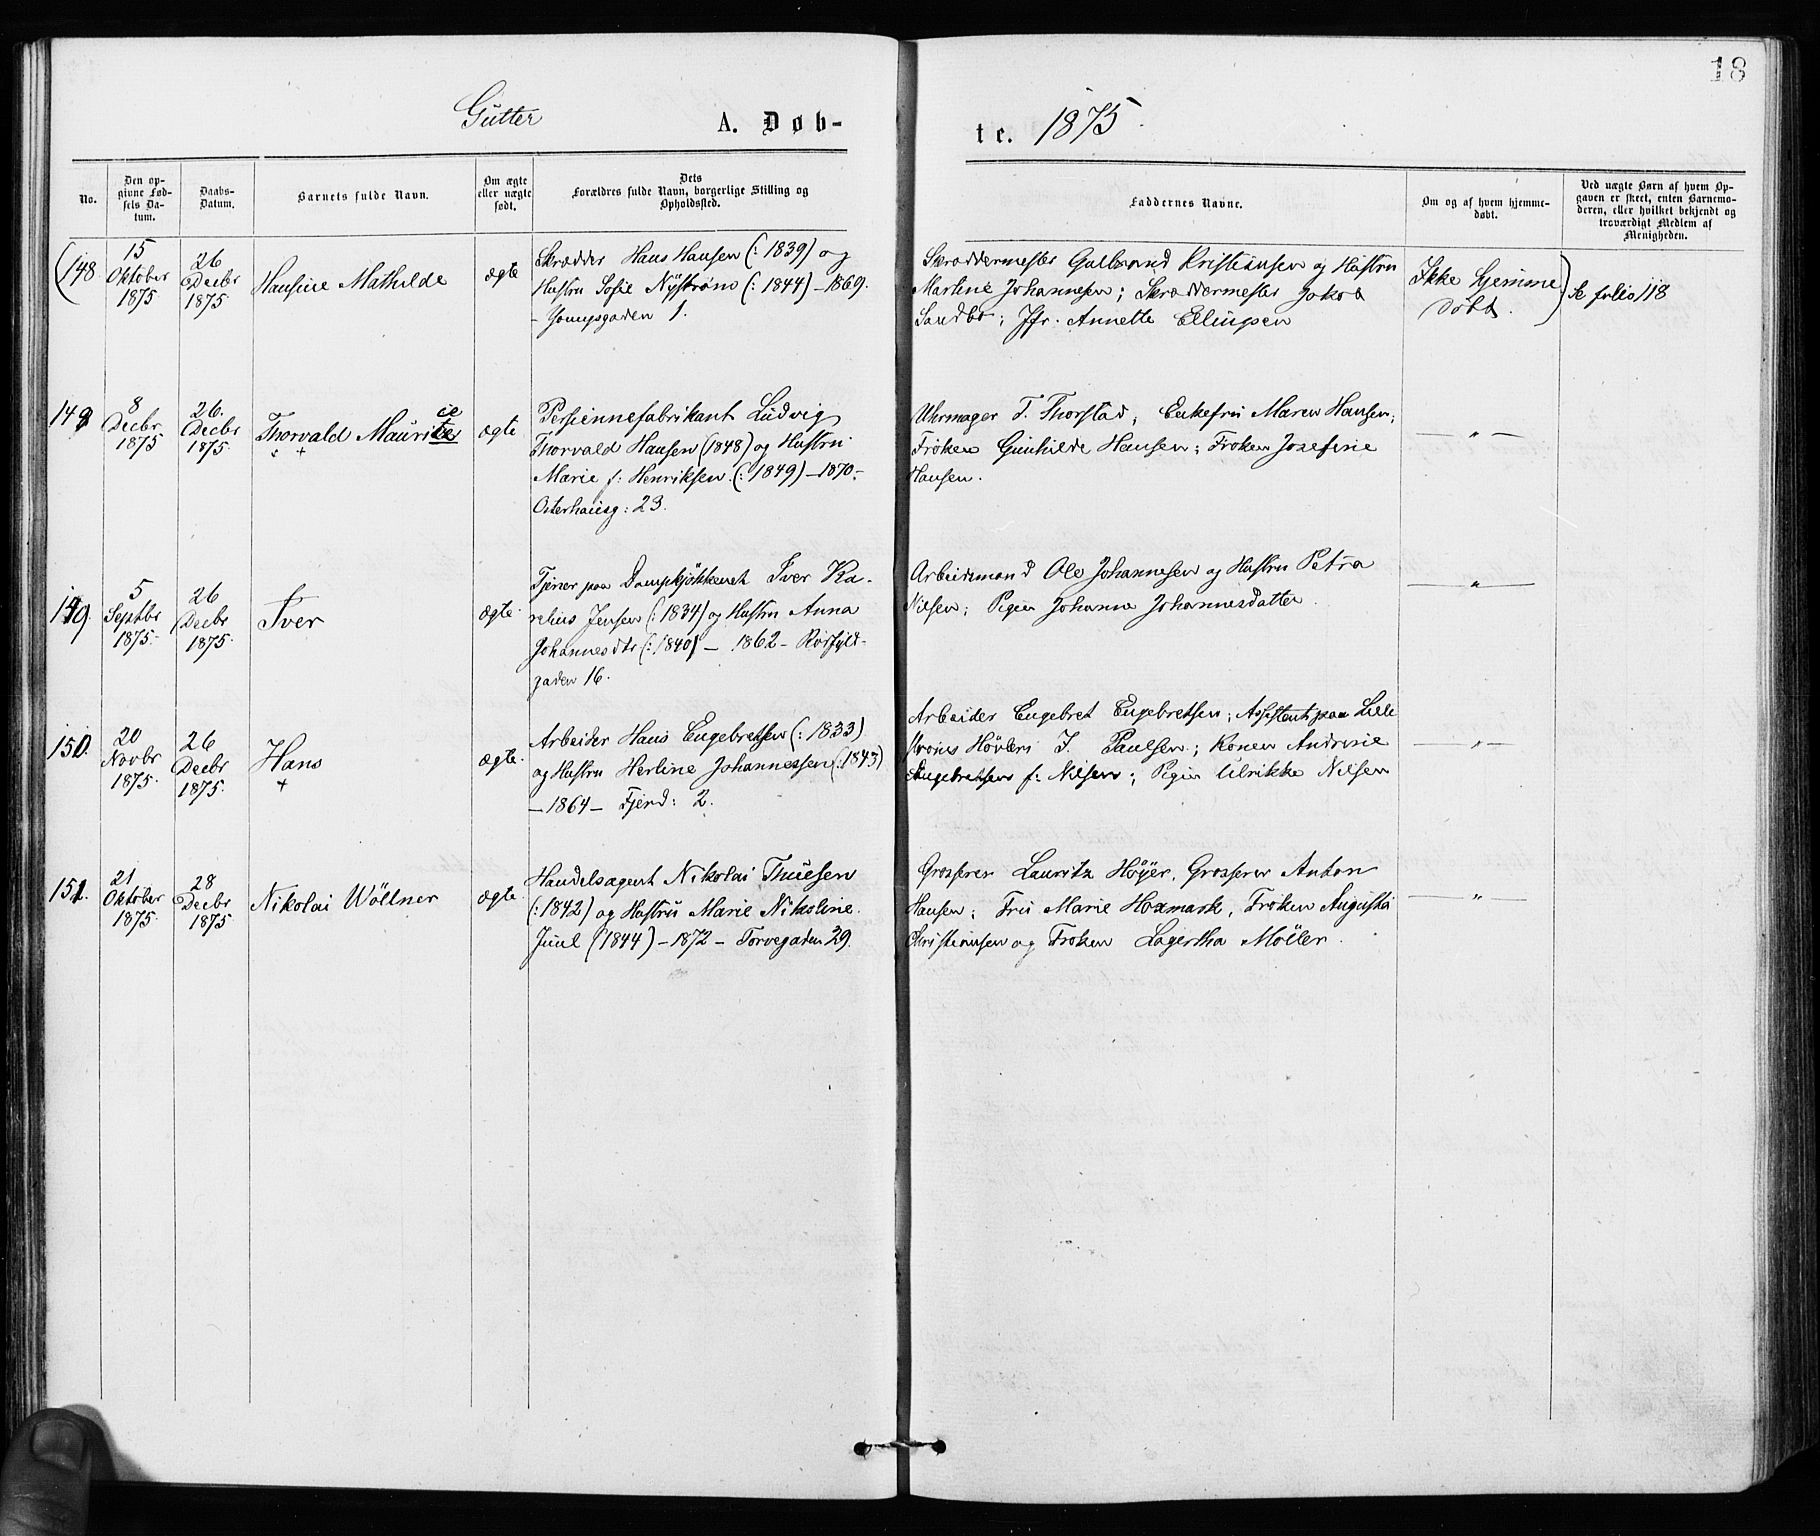 18
Gutter
A. Døb-
te. 1875.
No.
Den op-
givne Fød-
sels Da-
tum.
Daabs-
Datum.
Barnets fulde Navn.
Om ægte
eller uægte
født.
Dets
Forældres fulde Navn, borgerlige Stilling og
Opholdssted.
Faddernes Navne.
Om og af hvem hjemme-
døbt.
Ved uægte Børn af hvem Op-
gaven er skeet, enten Barnemo-
deren, eller hvilket bekjendt og
troværdigt Medlem af
Menigheden.
(148.
15
Oktober
1875
26
Decbr
1875
Hansine Mathilde
ægte
Skrædder Hans Hansen (: 1839) og
Hustru Sofie Nÿstrøm (: 1844) - 1869.
- Youngsgaden 1.
Skræddermester Gulbrand Kristiansen og Hustru
Martine Johannesen; Skræddermester Jakob
Sandbo; Jfr. Annette Ellingsen
Ikke hjemme
døbt.)
se folio 118
149
8
Decbr
1875
26.
Decbr
1875.
Thorvald Mauritz
ægte
Persiennefabrikant Ludvig
Thorvald Hansen (1848) og Hustru
Marie f: Henriksen. (: 1849) - 1870 -
Osterhausg: 23.
Uhrmager T. Thorstad; Enkefru Maren Hansen;
Frøken Gunhilde Hansen; Frøken Josefine
Hansen.
— " —
149.
5
Septbr
1875.
26
Decbr
1875.
Iver
ægte
Tjener paa Dampkjøkkenet Iver Ka-
relius Jensen (: 1834) og Hustru Anna
Johannesdtr (: 1840) - 1862 - Rørfyld-
gaden 16.
Arbeidsmand Ole Johannesen og Hustru Petra
Nilsen; Pigen Johanne Johannesdatter.
— " —
150.
20
Novbr
1875.
26
Decbr
1875.
Hans
+
ægte.
Arbeider Hans Engebretsen (: 1833)
og Hustru Herline Johannessen (: 1843)
- 1864 - Fjerd: 2.
Arbeider Engebret Engebretsen; Assistent paa Lille
strøms Høvleri J. Paulsen; Konen Andrine
Engebretsen f: Nilsen; Pigen Ulrikke Nilsen
— " —
151.
21
Oktober
1875.
28
Decbr
1875
Nikolai Wöllner
ægte.
Handelsagent Nikolai Thuesen
(: 1842) og Hustru Marie Nikoline
Juul (1844) - 1872 - Torvegaden 29.
Grosserer Lauritz Höyer, Grosserer Anton
Hansen; Fru Marie Hoxmark, Frøken Augusta
Christiansen og Frøken Lagertha Möller.
— " —